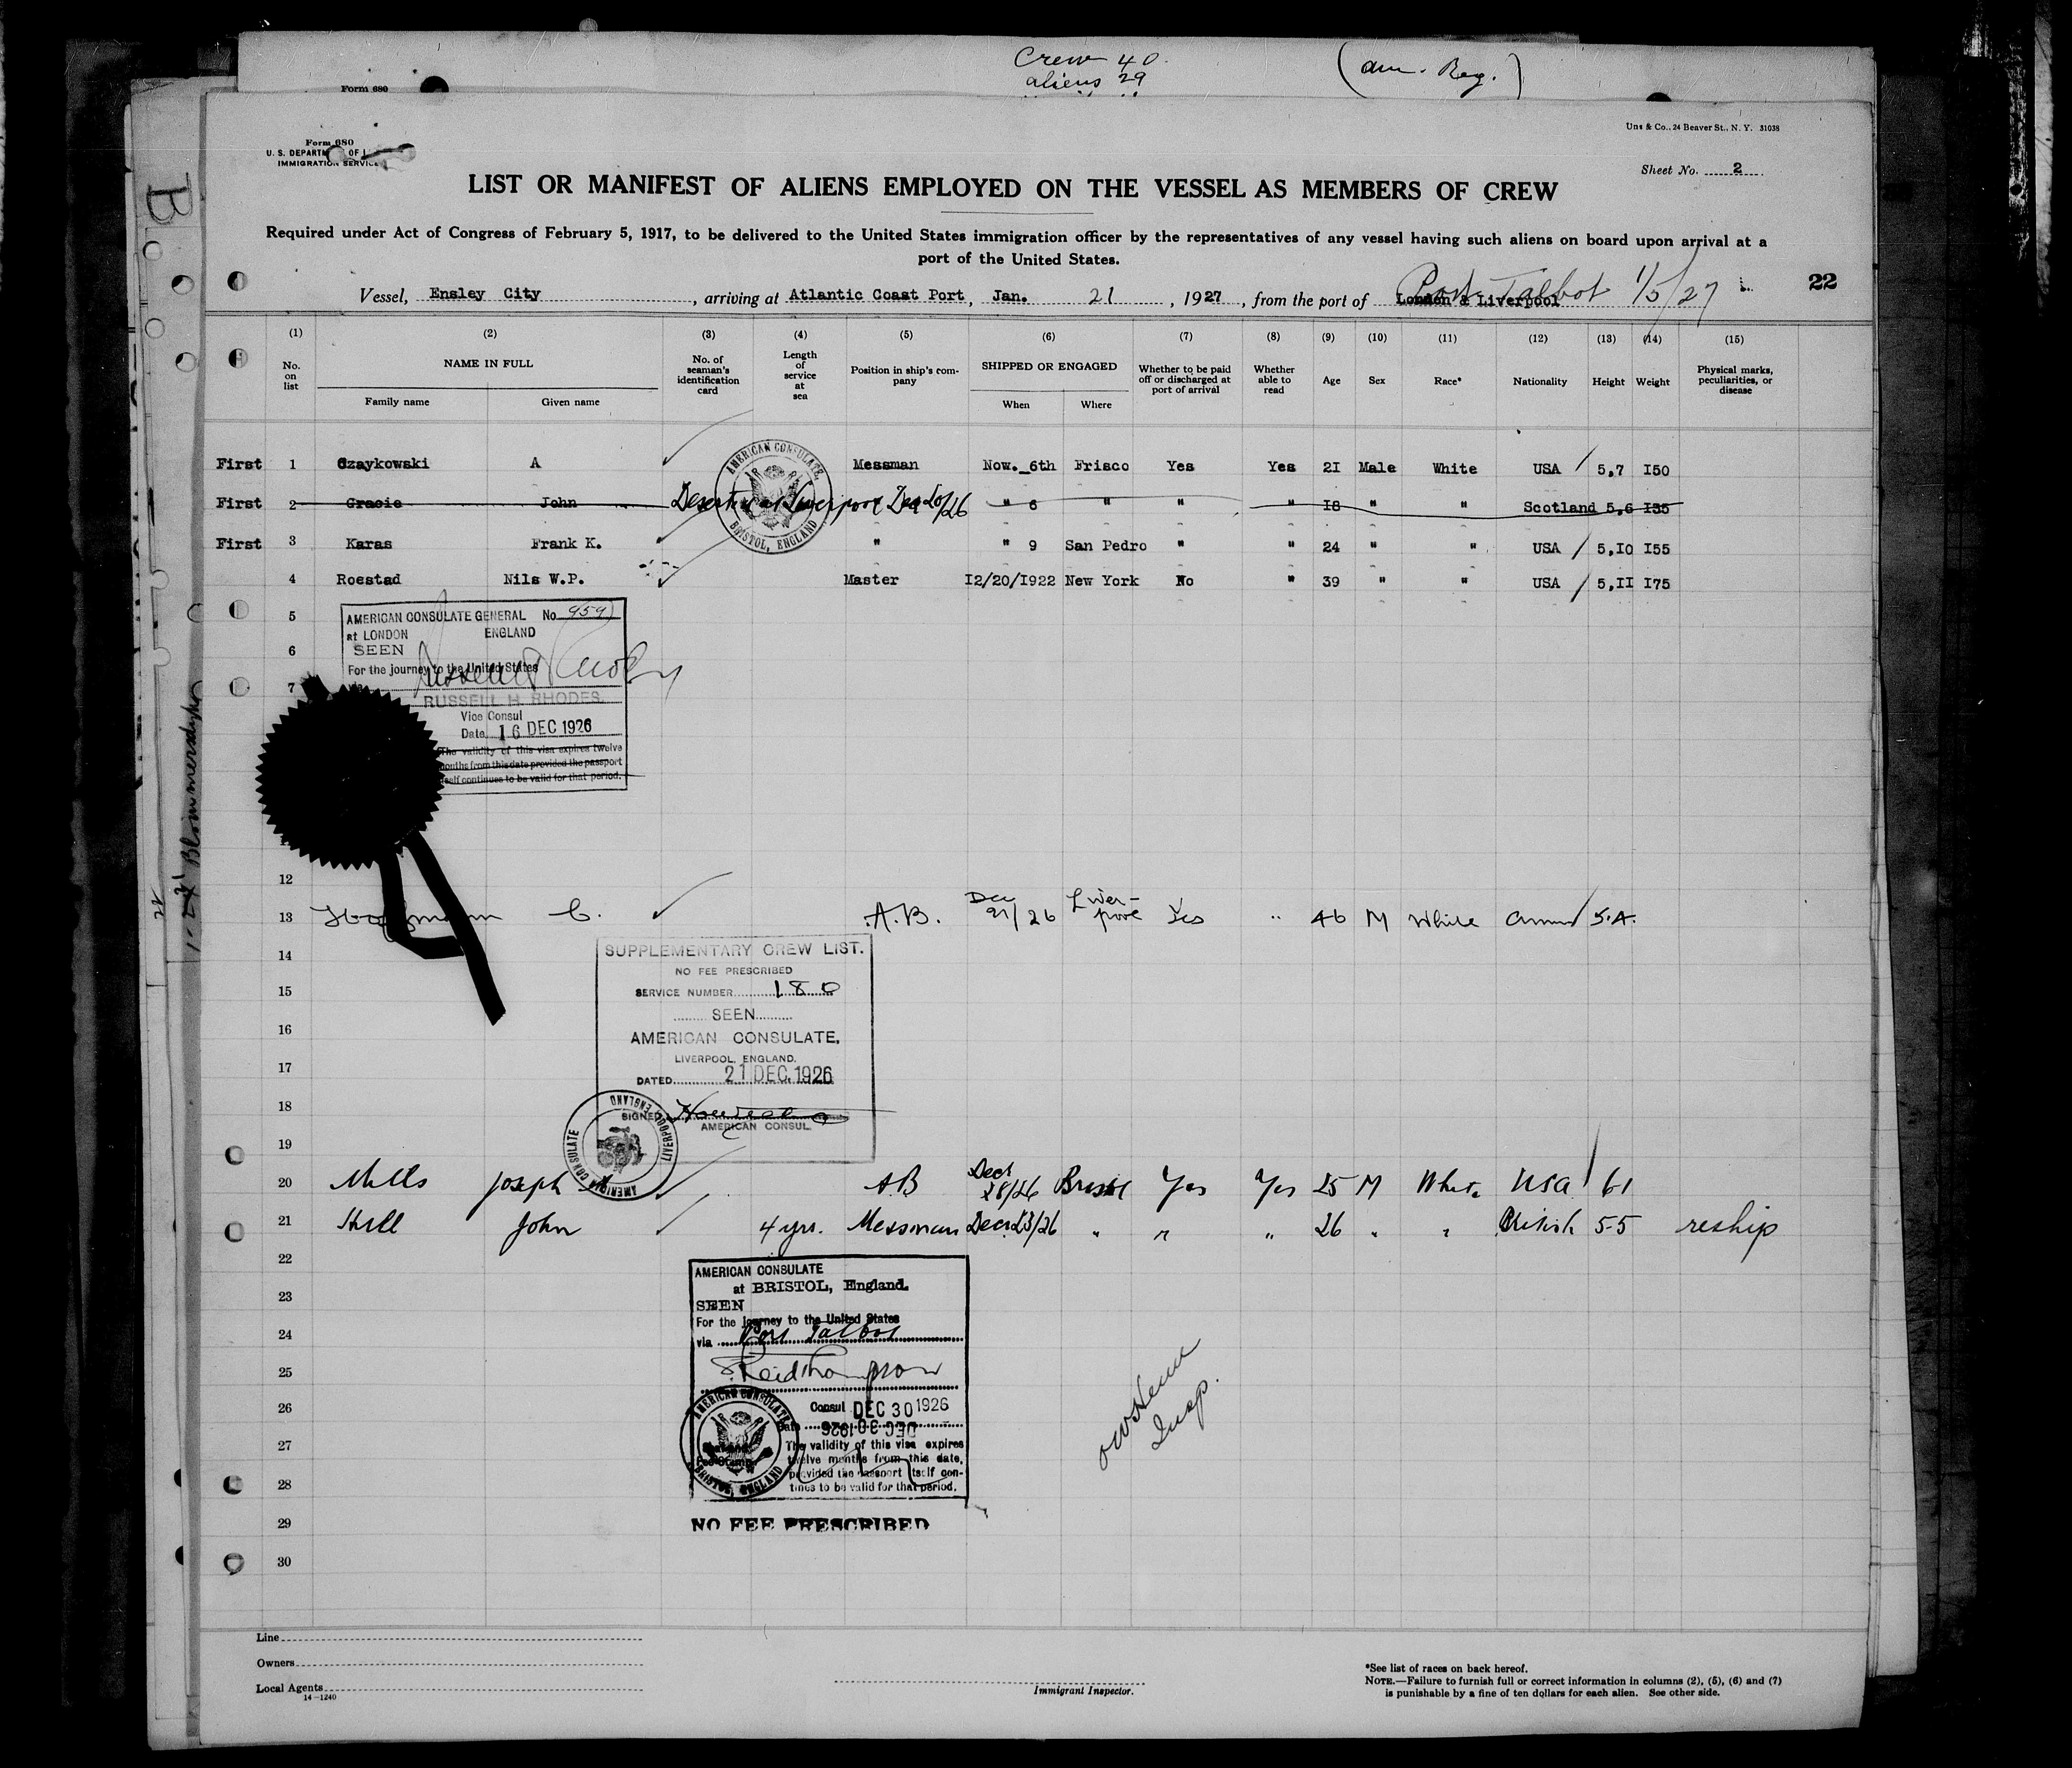 Crew 40.
aliens 29
(am. Reg.)
Form 680
Uns & Co., 24 Beaver St., N. Y. 31038
Form 680
U. S. DEPARTM OF L
IMMIGRATION SERVICE
Sheet No. 2
LIST OR MANIFEST OF ALIENS EMPLOYED ON THE VESSEL AS MEMBERS OF CREW
Required under Act of Congress of February 5, 1917, to be delivered to the United States immigration officer by the representatives of any vessel having such aliens on board upon arrival at a
port of the United States.
Vessel, Ensley City, arriving at Atlantic Coast Port, Jan. 21, 1927, from the port of London & Liverpool Port Talbot 1/5/27
22
B
(1) (2) (3) (4) (5) (6) (7) (8) (9) (10) (11) (12) (13) (14) (15)
No. on list
NAME IN FULL
Family name Given name
No. of seaman's identification card
Length of service at sea
Position in ship's company
SHIPPED OR ENGAGED
When Where
Whether to be paid off or discharged at port of arrival
Whether able to read
Age Sex Race* Nationality Height Weight
Physical marks, peculiarities, or disease
First 1 Czaykowski A Messman Nov. 6th Frisco Yes Yes 2I Male White USA 5,7 I50
First 2 Gracie John Deserted at Liverpool Dec 20/26 " 6 " " " I8 " " Scotland 5,6 I35
First 3 Karas Frank K. " " 9 San Pedro " " 24 " " USA 5,I0 I55
4 Roestad Nils W.P. Master I2/20/I922 New York No " 39 " " USA 5,II I75
5
6
7
AMERICAN CONSULATE GENERAL No. 959
at LONDON ENGLAND
SEEN
For the journey to the United States
RUSSELL H. RHODES.
Vice Consul
Date 16 DEC 1926
The validity of this visa expires twelve
months from this date provided the passport
itself continues to be valid for that period.
AMERICAN CONSULATE
BRISTOL, ENGLAND
12
13 C. A.B. Dec 21/26 Liverpool Yes " 46 M White
14
15
16
17
18
19
SUPPLEMENTARY CREW LIST.
NO FEE PRESCRIBED
SERVICE NUMBER 180
SEEN
AMERICAN CONSULATE,
LIVERPOOL, ENGLAND.
DATED 21 DEC. 1926
SIGNED
AMERICAN CONSUL.
AMERICAN CONSULATE
LIVERPOOL ENGLAND
20 Mills Joseph AB Decr 28/26 Bristol Yes Yes 25 M White USA 61
21 Hill John 4 yrs. Messman Decr. 23/26 " " " 26 " " British 5-5 reship
22
23
24
25
26
27
28
29
30
AMERICAN CONSULATE
at BRISTOL, England.
SEEN
For the journey to the United States
via Port Talbot
Reid Thompson
Consul
DEC 30 1926
Date DEC 30 1926
The validity of this visa expires
twelve months from this date,
provided the passport itself con-
tinues to be valid for that period.
AMERICAN CONSULATE
BRISTOL, ENGLAND
NO FEE PRESCRIBED
Insp.
Line
Owners
Local Agents
14—1240
Immigrant Inspector.
*See list of races on back hereof.
NOTE.—Failure to furnish full or correct information in columns (2), (5), (6) and (7)
is punishable by a fine of ten dollars for each alien. See other side.